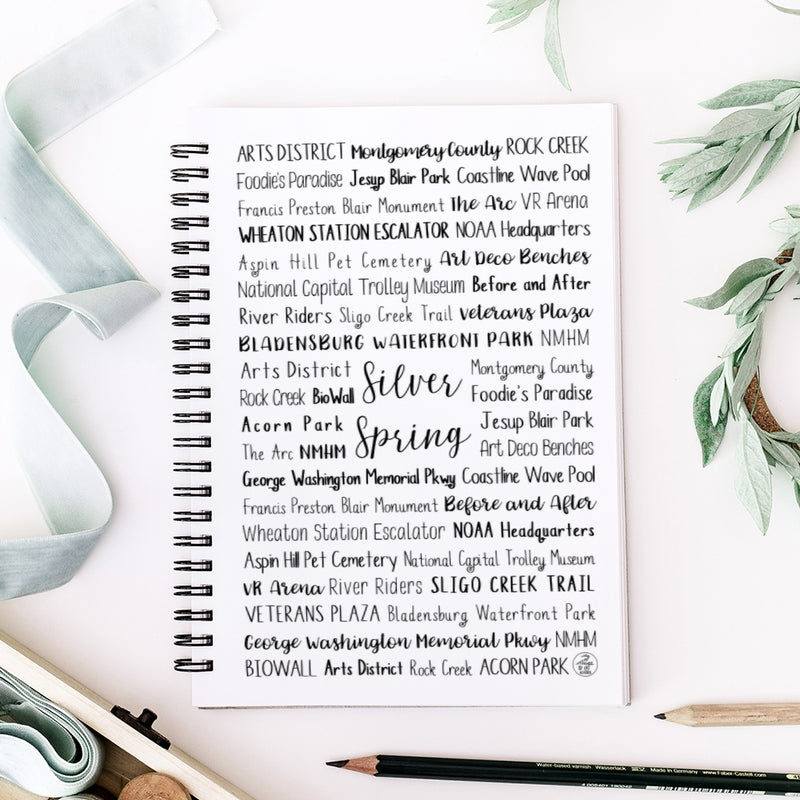 ARTS DISTRICT Montgomery County ROCK CREEK
Foodie's Paradise Jesup Blair Park Coastline Wave Pool
Francis Preston Blair Monument The Arc VR Arena
WHEATON STATION ESCALATOR NOAA Headquarters
Aspin Hill Pet Cemetery Art Deco Benches
National Capital Trolley Museum Before and After
River Riders Sligo Creek Trail Veterans Plaza
BLADENSBURG WATERFRONT PARK NMHM
Arts District Montgomery County
Rock Creek BioWall Silver Foodie's Paradise
Acorn Park Spring Jesup Blair Park
The Arc NMHM Art Deco Benches
George Washington Memorial Pkwy Coastline Wave Pool
Francis Preston Blair Monument Before and After
Wheaton Station Escalator NOAA Headquarters
Aspin Hill Pet Cemetery National Capital Trolley Museum
VR Arena River Riders SLIGO CREEK TRAIL
VETERANS PLAZA Bladensburg Waterfront Park
George Washington Memorial Pkwy NMHM
BIOWALL Arts District Rock Creek ACORN PARK
Water-based varnish Wasserlack Made in Germany www.Faber-Castell.com